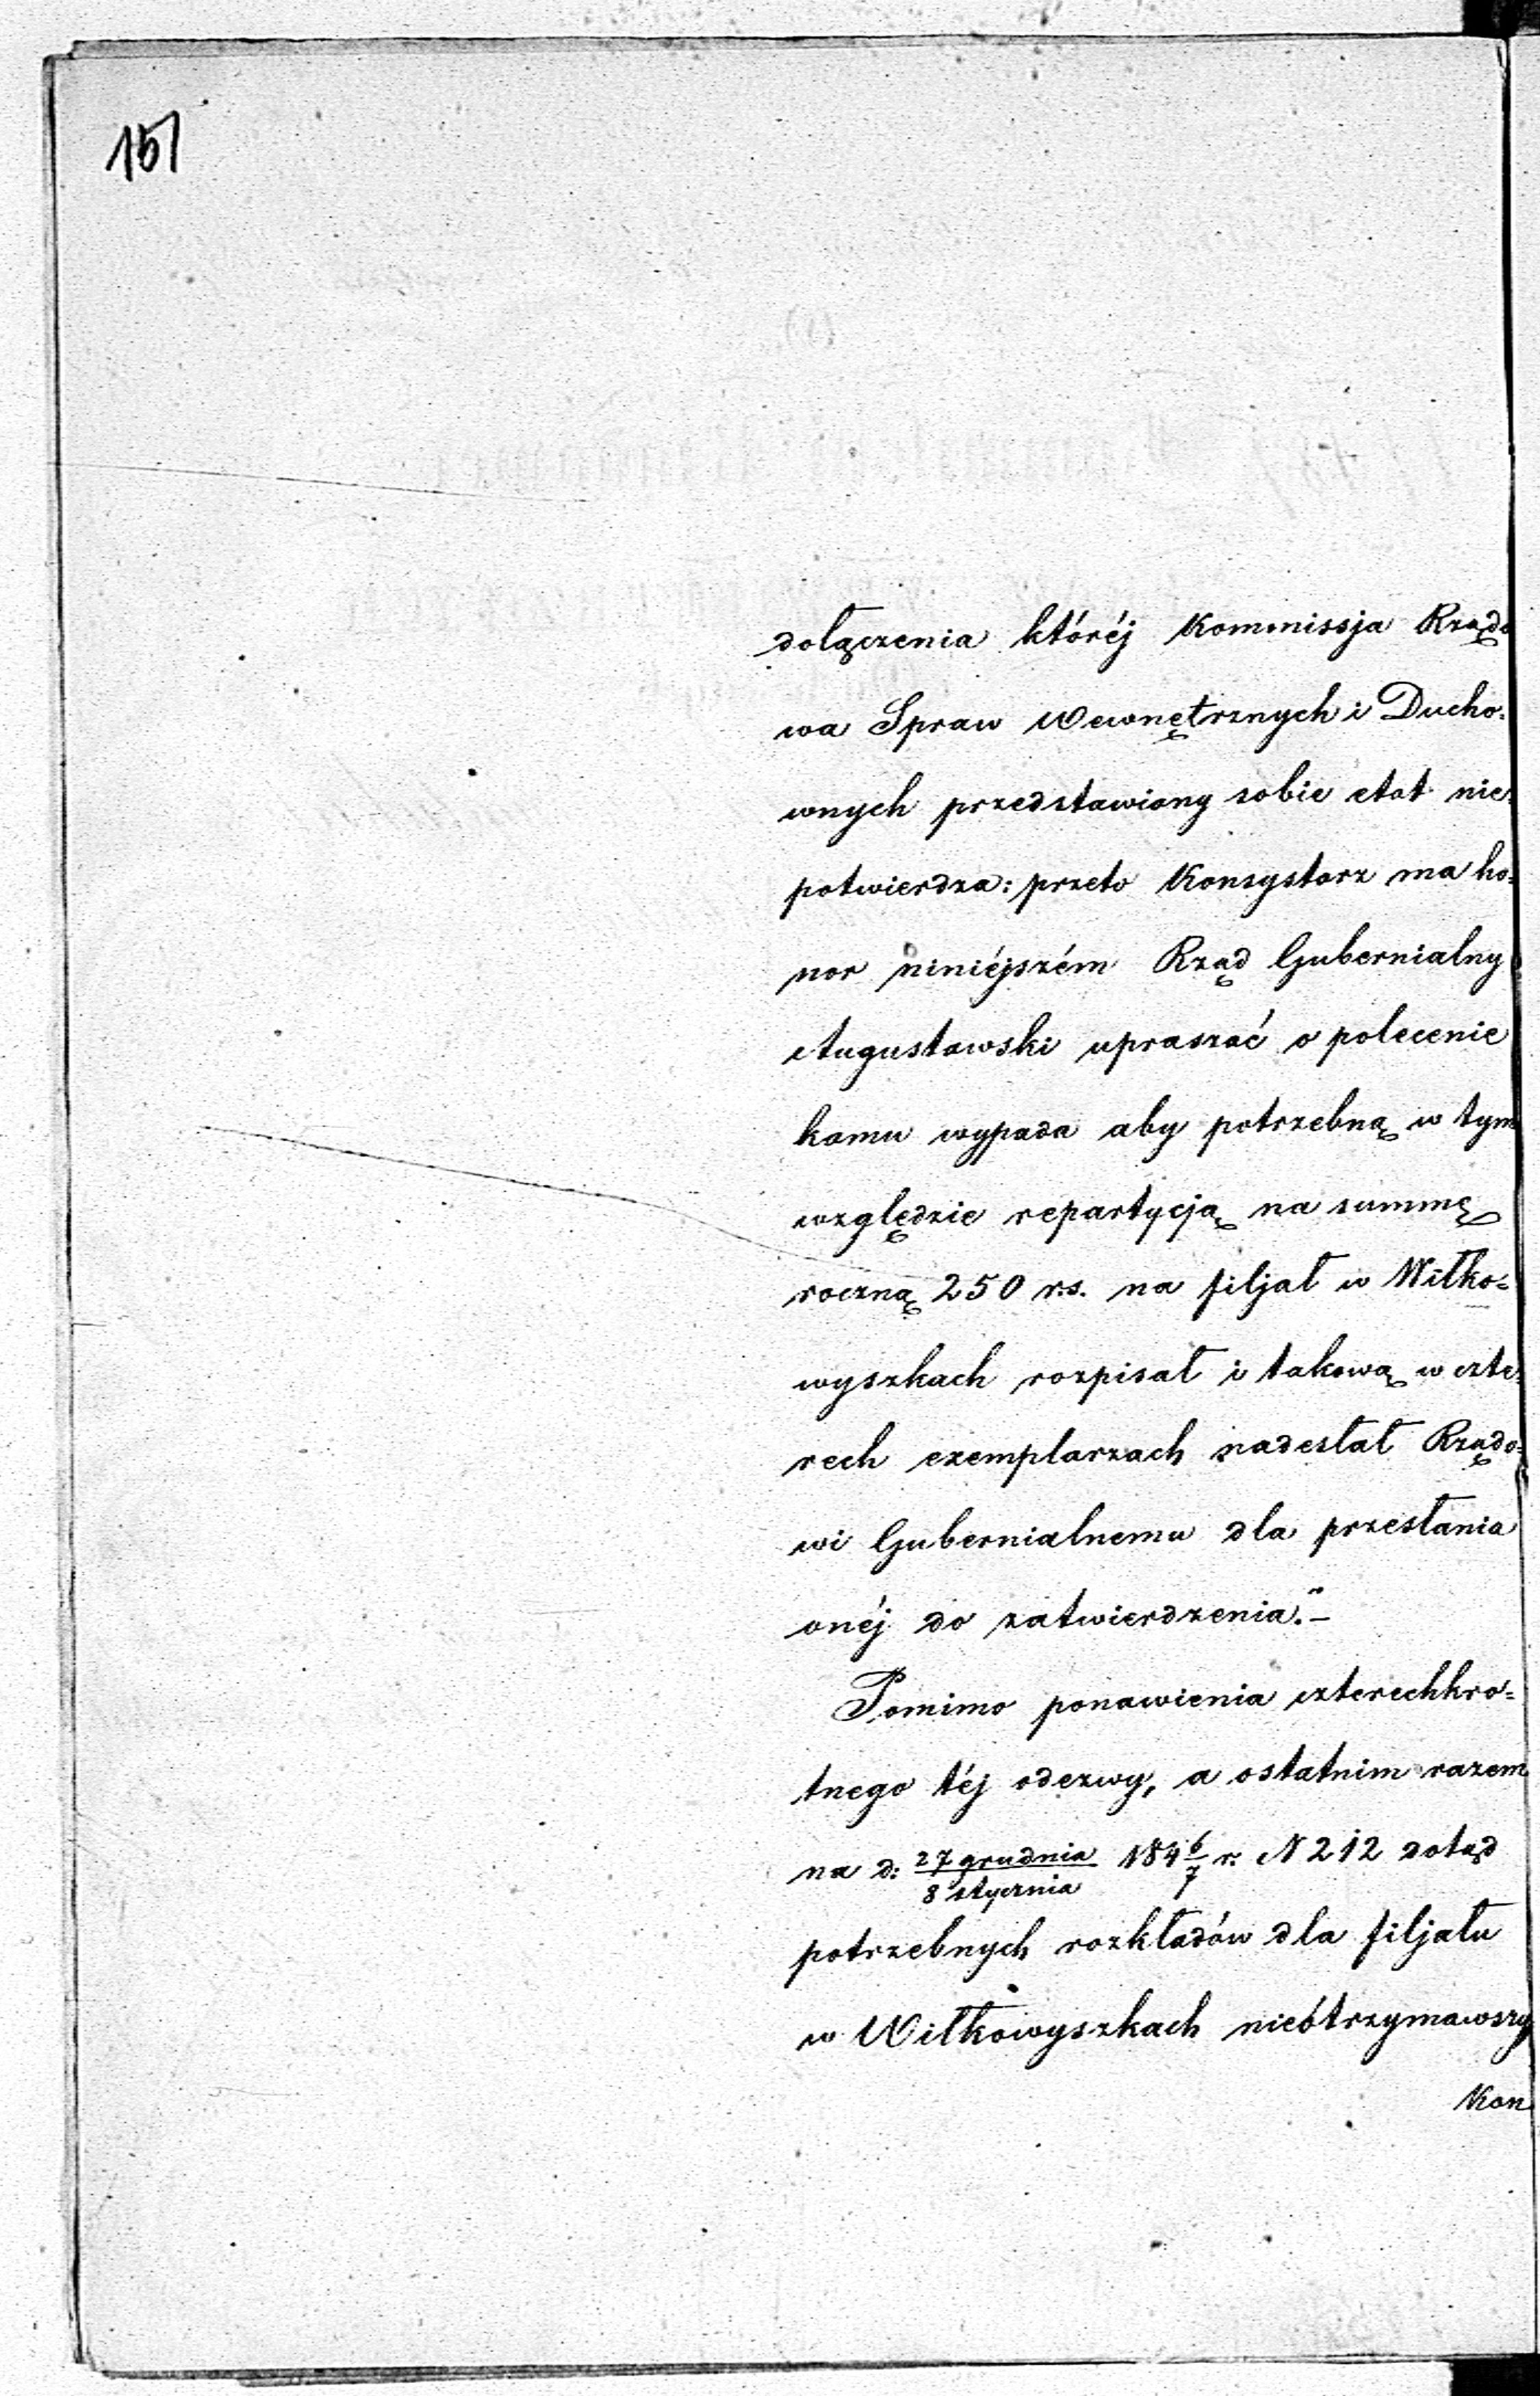 151
dołączenia któréj Kommissja Rządo
wa Spraw Wewnętrznych i Ducho-
wnych przedstawiony sobie etat nie-
potwierdza: przeto Konsystorz ma ho-
nor niniéjszém Rząd Gubernialny
Augustowski upraszać o polecenie
komu wypada aby potrzebną w tym
względzie repartycją na summę
roczną 250 rs. na filjał w Wiłko-
wyszkach rozpisał i takową w czte-
rech exemplarzach nadesłał Rządo-
wi Gubernialnemu dla przesłania
onéj do zatwierdzenia."–
Pomimo ponawienia czterechkro-
tnego téj odezwy, a ostatnim razem
na d: 27 grudnia/8 stycznia 184 6/7 r. N 212 dotąd
potrzebnych rozkładów dla filjału
w Wiłkowyszkach nieótrzymawszy
Kon